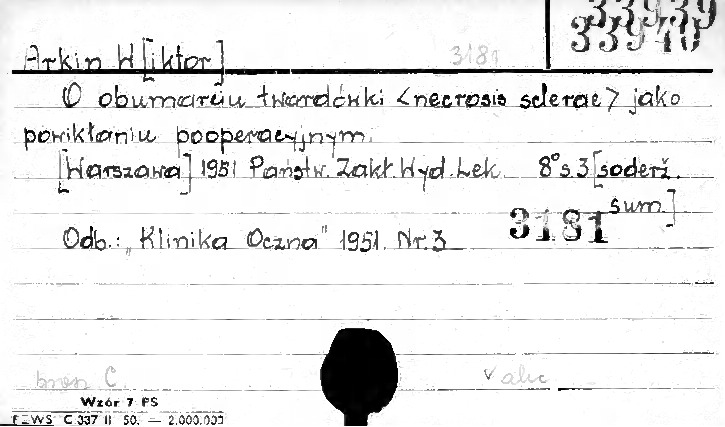 33939
33940
Arkin W[iktor] 3181
O obumarciu twardówki <necrosis sclerae> jako
powikłaniu pooperacyjnym.
[Warszawa] 1951 Państw. Zakł. Wyd. Lek. 8° s 3 [soderž.
sum.]
3181
Odb.: „Klinika Oczna" 1951. Nr. 3
C
Wzór 7 PS
C 337 II 50. — 2.000.000